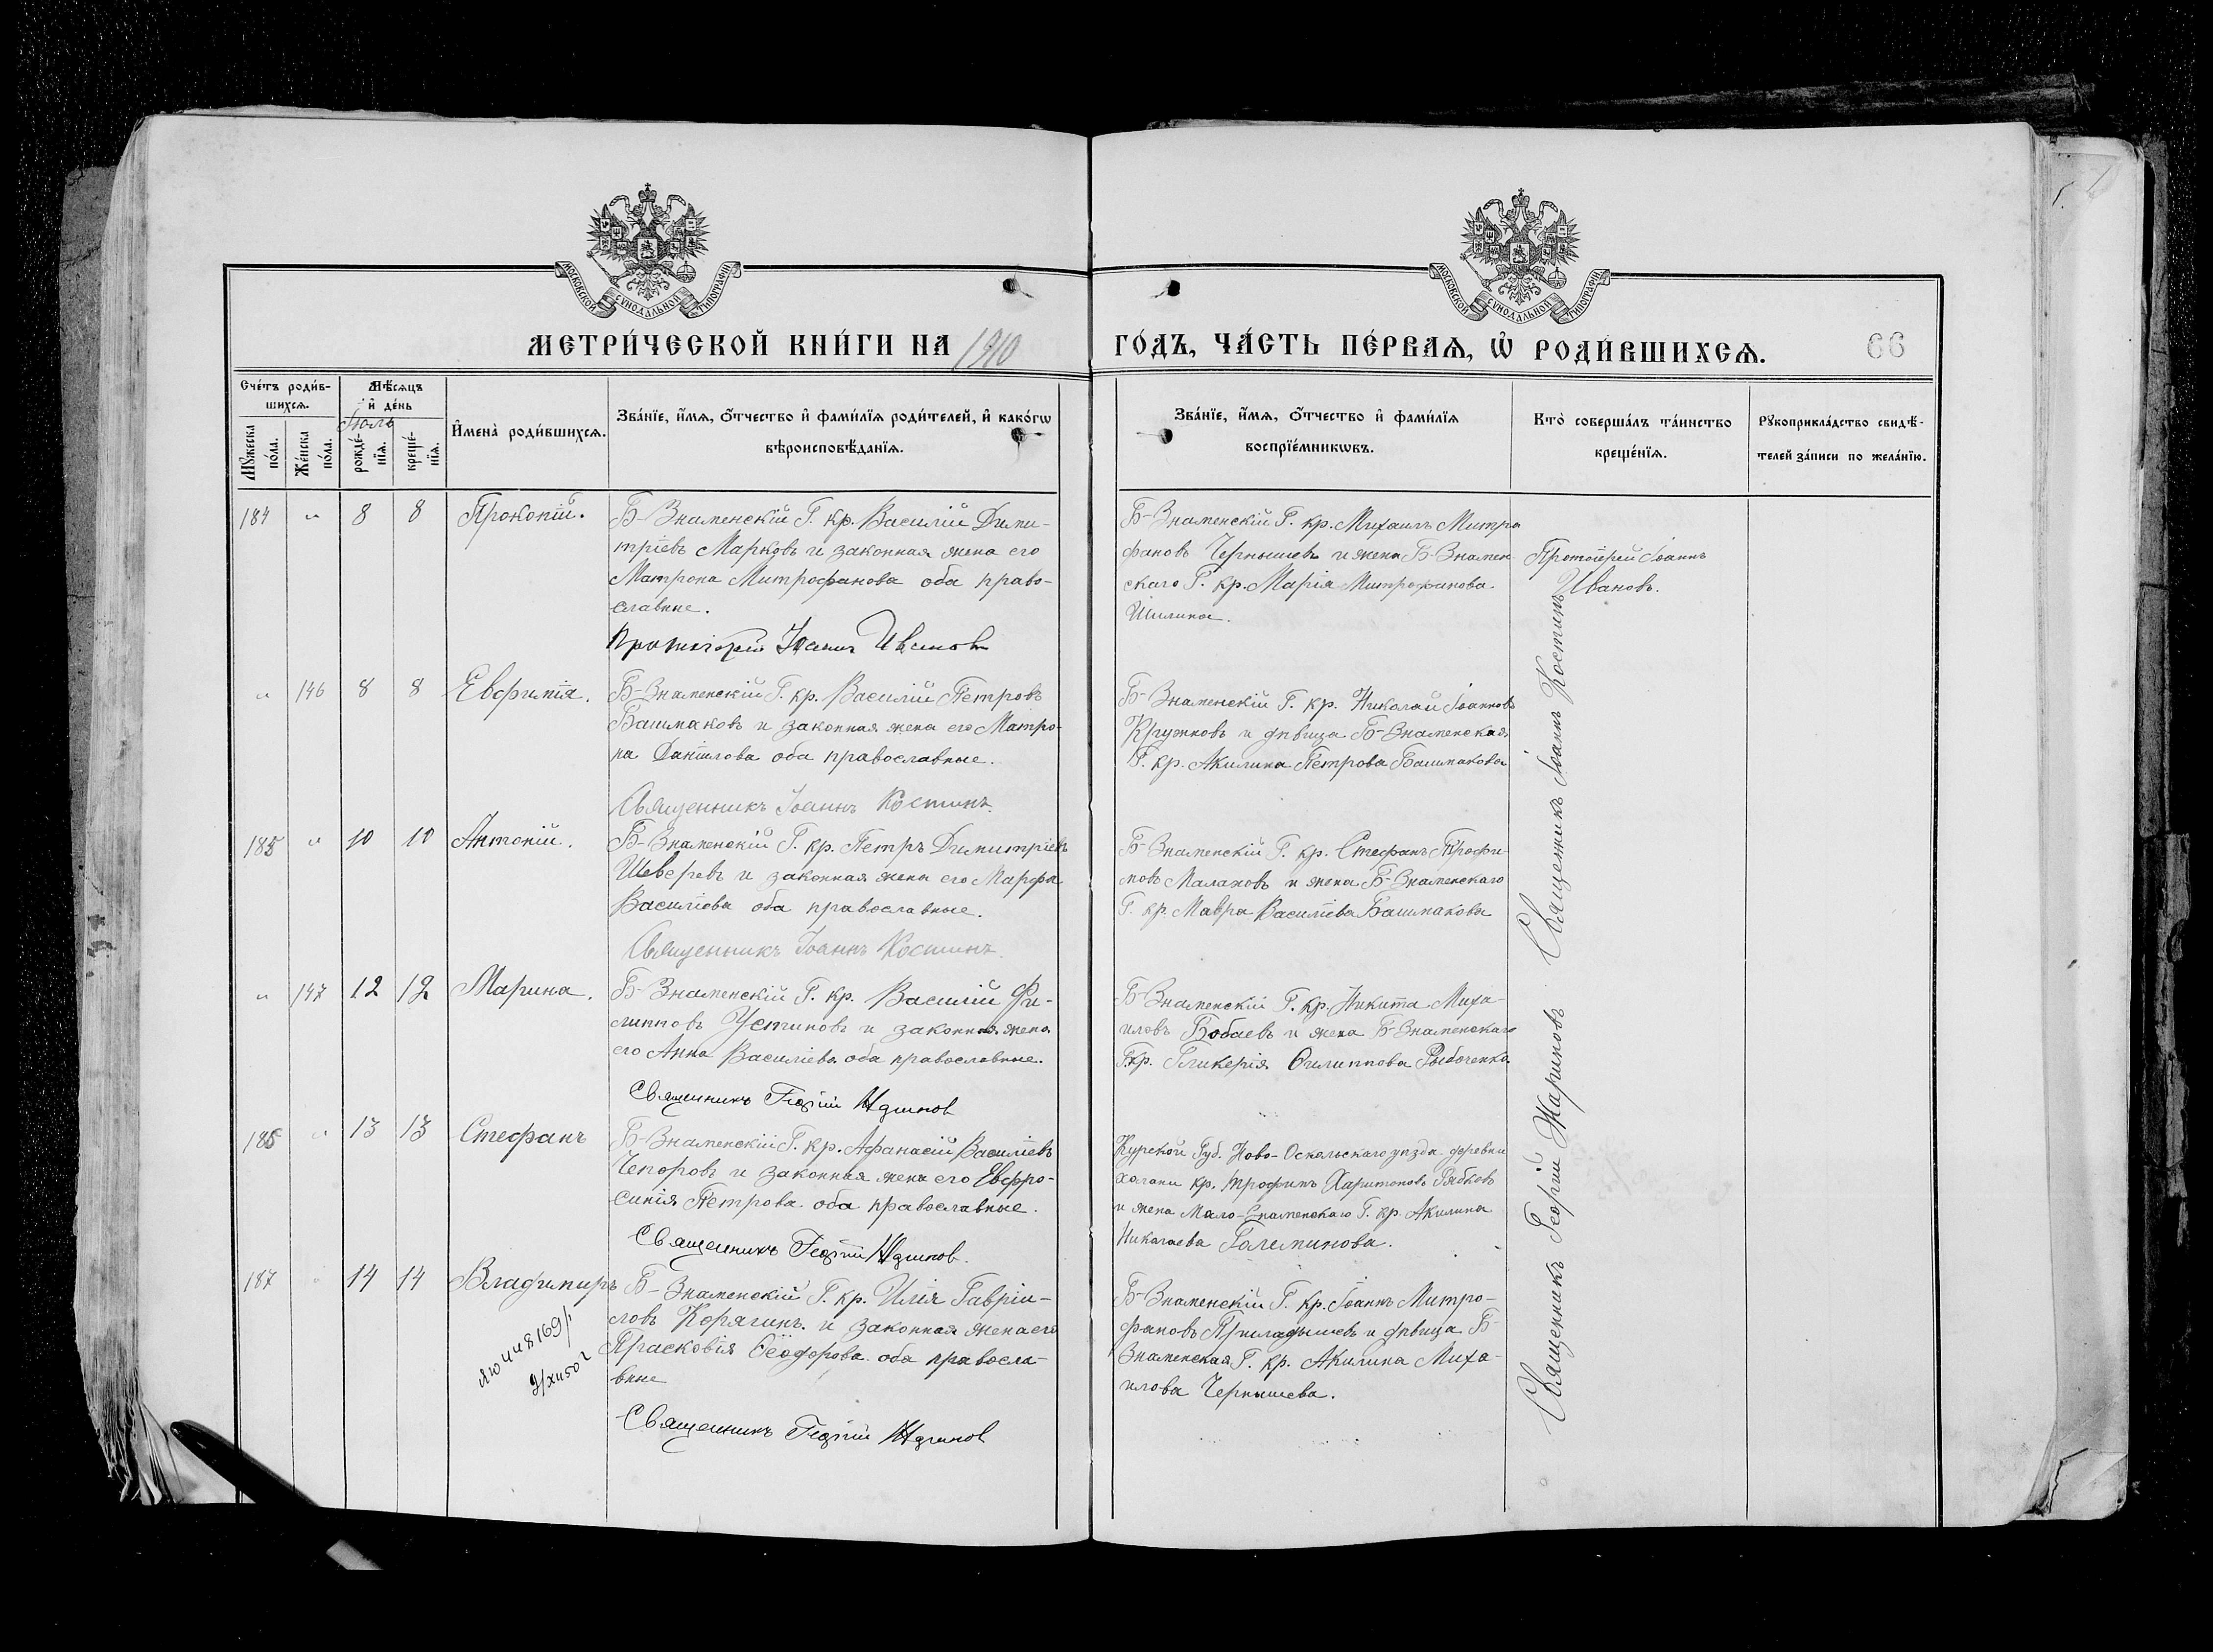 МОСКОВСКОЙ СУНОДАЛЬНОЙ ТИПОГРАФІИ
МОСКОВСКОЙ СУНОДАЛЬНОЙ ТИПОГРАФІИ
МЕТРИ́ЧЕСКОЙ КНИ́ГИ НА 1910
ГО́ДЪ, ЧА́СТЬ ПЕ́РВАѦ, Ѡ РОДИ́ВШИХСѦ.
66
Сче́тъ роди́в-
шихсѧ.
Мꙋ́жеска
по́ла.
Же́нска
по́ла.
Мѣ́сѧцъ
и҆ де́нь
Іюль
рожде́-
нїѧ.
креще́-
нїѧ.
И҆мена̀ роди́вшихсѧ.
Зва́нїе, и҆́мѧ, ѻ҆́тчество и҆ фами́лїѧ роди́телей, и҆ како́гѡ
вѣроисповѣ́данїѧ.
Зва́нїе, и҆́мѧ, ѻ҆́тчество и҆ фами́лїѧ
воспрїе́мникѡвъ.
Кто̀ соверша́лъ та́инство
креще́нїѧ.
Рꙋкоприкла́дство свидѣ́-
телей за́писи по жела́нїю.
184 " 8 8 Прокопій.
Б-Знаменскій Г. кр. Василій Дими-
тріевъ Марковъ и законная жена его
Матрона Митрофанова оба право-
славные.
Протоіерей Іоаннъ Ивановъ
Б-Знаменскій Г. кр. Михаилъ Митро
фановъ Чернышевъ и жена Б-Знамен
скаго Г. кр. Марія Митрофанова
Шилина.
Протоіерей Іоаннъ
Ивановъ.
" 146 8 8 Евфимія.
Б-Знаменскій Г. кр. Василій Петровъ
Башмаковъ и законная жена его Матро-
на Даніилова оба православные.
Священникъ Іоаннъ Костинъ.
Б-Знаменскій Г. кр. Николай Іоанновъ
Кружковъ и дѣвица Б-Знаменская
Г. кр. Акилина Петрова Башмакова
Священникъ Іоаннъ Костинъ
185 " 10 10 Антоній.
Б-Знаменскій Г. кр. Петръ Димитріевъ
Шеверевъ и законная жена его Марфа
Василіева оба православные.
Священникъ Іоаннъ Костинъ.
Б-Знаменскій Г. кр. Стефанъ Трофи-
мовъ Малаховъ и жена Б-Знаменскаго
Г. кр. Мавра Василіева Башмакова
" 147 12 12 Марина.
Б-Знаменскій Г. кр. Василій Фи-
липповъ Устиновъ и законная жена
его Анна Василіева оба православные.
Священникъ Георгій
Б-Знаменскій Г. кр. Никита Миха-
иловъ Бобаевъ и жена Б-Знаменскаго
Г. кр. Гликерія Филиппова Рыбоченка
186 " 13 13 Стефанъ
Б-Знаменскій Г. кр. Афанасій Василіевъ
Чепоровъ и законная жена его Евфро-
синія Петрова оба православные.
Священникъ Георгій
Курской Губ. Ново-Оскольскаго уѣзда деревни
кр. Трофимъ Харитоновъ Рябковъ
и жена Мало-Знаменскаго Г. кр. Акилина
Николаева
Священникъ Георгій Жариновъ
187 " 14 14 Владимиръ
Б-Знаменскій Г. кр. Илія Гавріи-
ловъ Корягинъ и законная жена его
Прасковія Ѳеодорова оба правосла-
вные
Священникъ Георгій
Б-Знаменскій Г. кр. Іоаннъ Митро-
фановъ и дѣвица Б-
Знаменская Г. кр. Акилина Миха-
илова Чернышева.